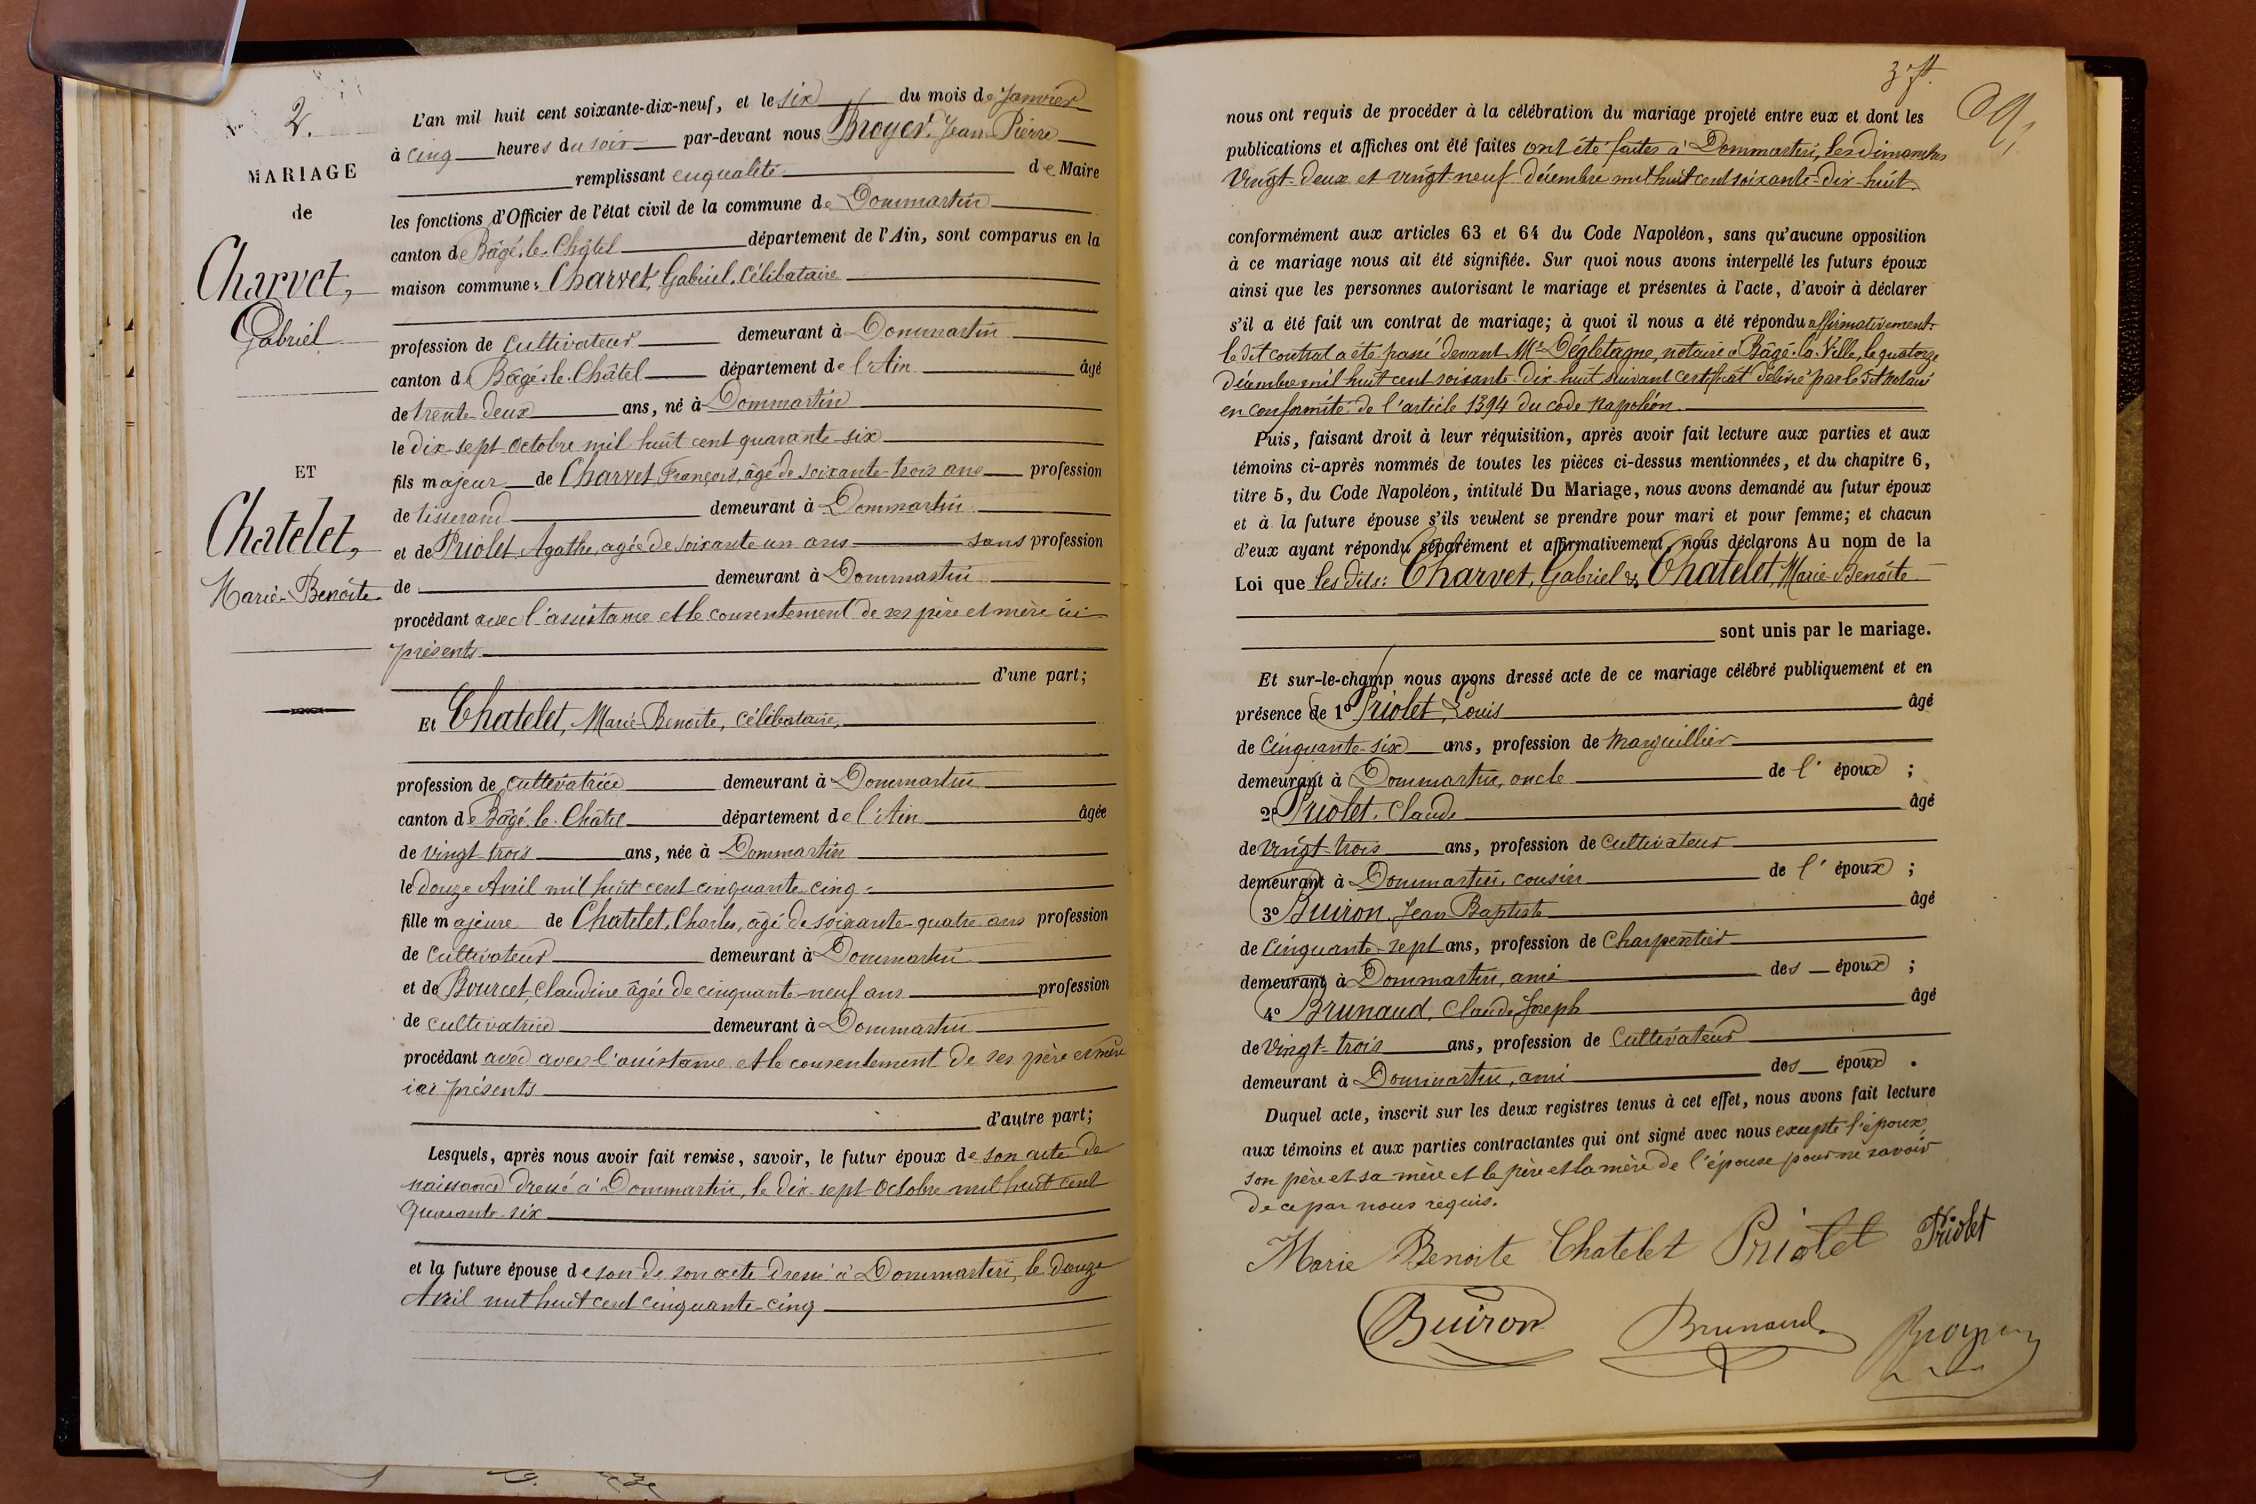 N° 2.
MARIAGE
de
Charvet,
Gabriel
ET
Chatelet,
Marie-Benoite
L'an mil huit cent soixante-dix-neuf, et le six du mois de Janvier
à cinq heures du soir par-devant nous Broyer Jean-Pierre
remplissant en qualité de Maire
les fonctions d'Officier de l'état civil de la commune de Dommartin
canton de Bâgé-le-Châtel département de l'Ain, sont comparus en la
maison commune: Charvet, Gabriel, Célibataire
profession de Cultivateur demeurant à Dommartin
canton de Bâgé-le-Châtel département de l'Ain âgé
de trente-deux ans, né à Dommartin
le dix-sept Octobre mil huit cent quarante-six
fils majeur de Charvet François, âgé de soixante-trois ans profession
de tisserand demeurant à Dommartin
et de Priolet Agathe, agée de soixante un ans sans profession
de demeurant à Dommartin
procédant avec l'assistance et le consentement de ses père et mère ici
présents
d'une part;
Et Chatelet, Marie-Benoite, célibataire,
profession de cultivatrice demeurant à Dommartin
canton de Bâgé-le-Châtel département de l'Ain âgée
de vingt-trois ans, née à Dommartin
le douze Avril mil huit cent cinquante-cinq
fille majeure de Chatelet, Charles, âgé de soixante-quatre ans profession
de Cultivateur demeurant à Dommartin
et de Bourcet, Claudine âgée de cinquante-neuf ans profession
de cultivatrice demeurant à Dommartin
procédant avec avec l'assistance et le consentement de ses père et mère
ici présents
d'autre part;
Lesquels, après nous avoir fait remise, savoir, le futur époux de son acte de
naissance dressé à Dommartin, le dix-sept Octobre mil huit cent
quarante-six
et la future épouse de son de son acte dressé à Dommartin, le douze
Avril mil huit cent cinquante-cinq
nous ont requis de procéder à la célébration du mariage projeté entre eux et dont les
publications et affiches ont été faites ont été faites à Dommartin, les dimanches
vingt-deux et vingt-neuf décembre mil huit cent soixante-dix-huit
conformément aux articles 63 et 64 du Code Napoléon, sans qu'aucune opposition
à ce mariage nous ait été signifiée. Sur quoi nous avons interpellé les futurs époux
ainsi que les personnes autorisant le mariage et présentes à l'acte, d'avoir à déclarer
s'il a été fait un contrat de mariage; à quoi il nous a été répondu affirmativement.
le dit contrat a été passé devant Me Dégletagne, notaire à Bâgé-la-Ville, le quatorze
décembre mil huit cent soixante-dix-huit suivant certificat délivré par le dit notaire
en conformité de l'article 1394 du code napoléon.
Puis, faisant droit à leur réquisition, après avoir fait lecture aux parties et aux
témoins ci-après nommés de toutes les pièces ci-dessus mentionnées, et du chapitre 6,
titre 5, du Code Napoléon, intitulé Du Mariage, nous avons demandé au futur époux
et à la future épouse s'ils veulent se prendre pour mari et pour femme; et chacun
d'eux ayant répondu séparément et affirmativement, nous déclarons Au nom de la
Loi que les dits: Charvet, Gabriel & Chatelet, Marie-Benoite
sont unis par le mariage.
Et sur-le-champ nous avons dressé acte de ce mariage célébré publiquement et en
présence de 1° Priolet, Louis âgé
de Cinquante-six ans, profession de Marguillier
demeurant à Dommartin, oncle de l'époux;
2° Priolet, Claude âgé
de vingt-trois ans, profession de cultivateur
demeurant à Dommartin, cousin de l'époux;
3° Buiron, Jean Baptiste âgé
de cinquante-sept ans, profession de Charpentier
demeurant à Dommartin, ami des époux;
4° Brunaud, Claude Joseph âgé
de vingt-trois ans, profession de Cultivateur
demeurant à Dommartin, ami des époux.
Duquel acte, inscrit sur les deux registres tenus à cet effet, nous avons fait lecture
aux témoins et aux parties contractantes qui ont signé avec nous excepté l'époux,
son père et sa mère et le père et la mère de l'épouse pour ne savoir
de ce par nous requis.
Marie Benoite Chatelet Priolet Priolet
Buiron Brunaud Broyer